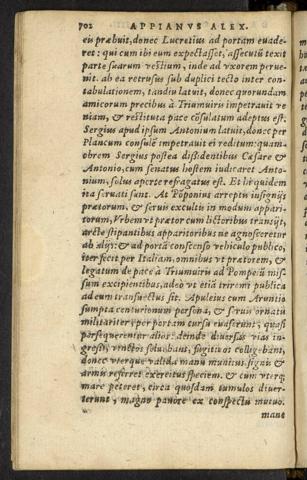 702 APPIANVS ALEX.
eis præbuit, donec Lucretius ad portam euade-
ret: qui cum ibi eum expectasset, assecutū texit
parte suarum vestium, inde ad vxorem perue-
nit. ab ea retrusus sub duplici tecto inter con-
tabulationem, tandiu latuit, donec quorundam
amicorum precibus à Triumuiris impetrauit ve
niam, & restituta pace cōsulatum adeptus est.
Sergius apud ipsum Antonium latuit, donec per
Plancum consulē impetrauit ei reditum: quam-
obrem Sergius postea dissidentibus Cæsare &
Antonio, cum senatus hostem iudicaret Anto-
nium, solus aperte refragatus est. Et hi quidem
ita seruati sunt. At Pōponius arreptis insignijs
prætorum, & seruis excultis in modum appari-
torum, Vrbem vt prætor cum lictoribus transijt,
arcte stipantibus apparitoribus ne agnosceretur
ab alijs: & ad portā conscenso vehiculo publico,
iter fecit per Italiam, omnibus vt prætorem, &
legatum de pace à Triumuiris ad Pompeiū mis-
sum excipientibus, adeo vt etiā triremi publica
ad eum transuectus sit. Apuleius cum Aruntio
sumpta centurionum persona, & seruis ornatis
militariter, per portam cursu euaserunt, quasi
persequerentur alios: deinde diuersas vias in-
gressi, vinctos soluebant, fugitiuos colligebant,
donec vterque valida manu munitus, signis &
armis referret exercitus speciem. & cum vterq;
mare peteret, circa quosdam tumulos diuer-
terunt, magno pauore ex conspectu mutuo.
mane